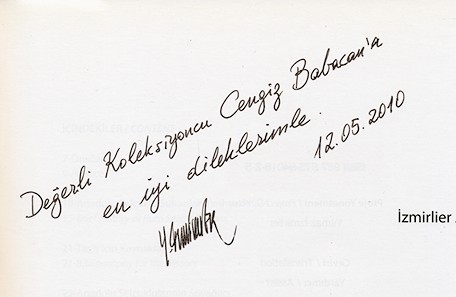 Değerli Koleksiyoncu Cengiz Babacan'a
en iyi dileklerimle.
12.05.2010
İzmirlier